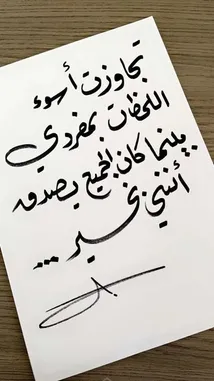 تجاوزت أسوء
اللحظات بمفردي
بينما كان الجميع يصدق
أنني بخير...